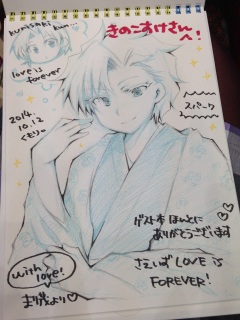 きのこすけさんへ!
love is
forever
2014.
10.12
くもり。
スパーク
ゲスト本 ほんとに
ありがとうございます
さえいずLOVE is
FOREVER!
with
love!